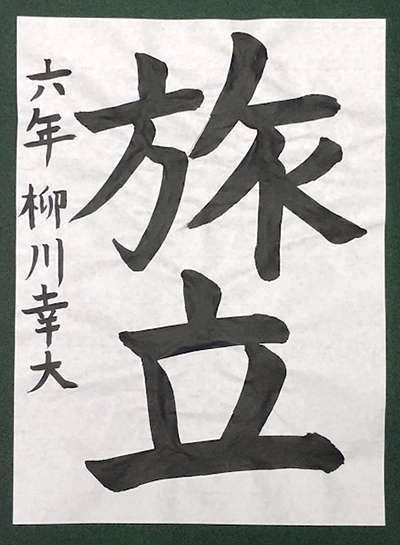 旅立
六年 柳川幸大